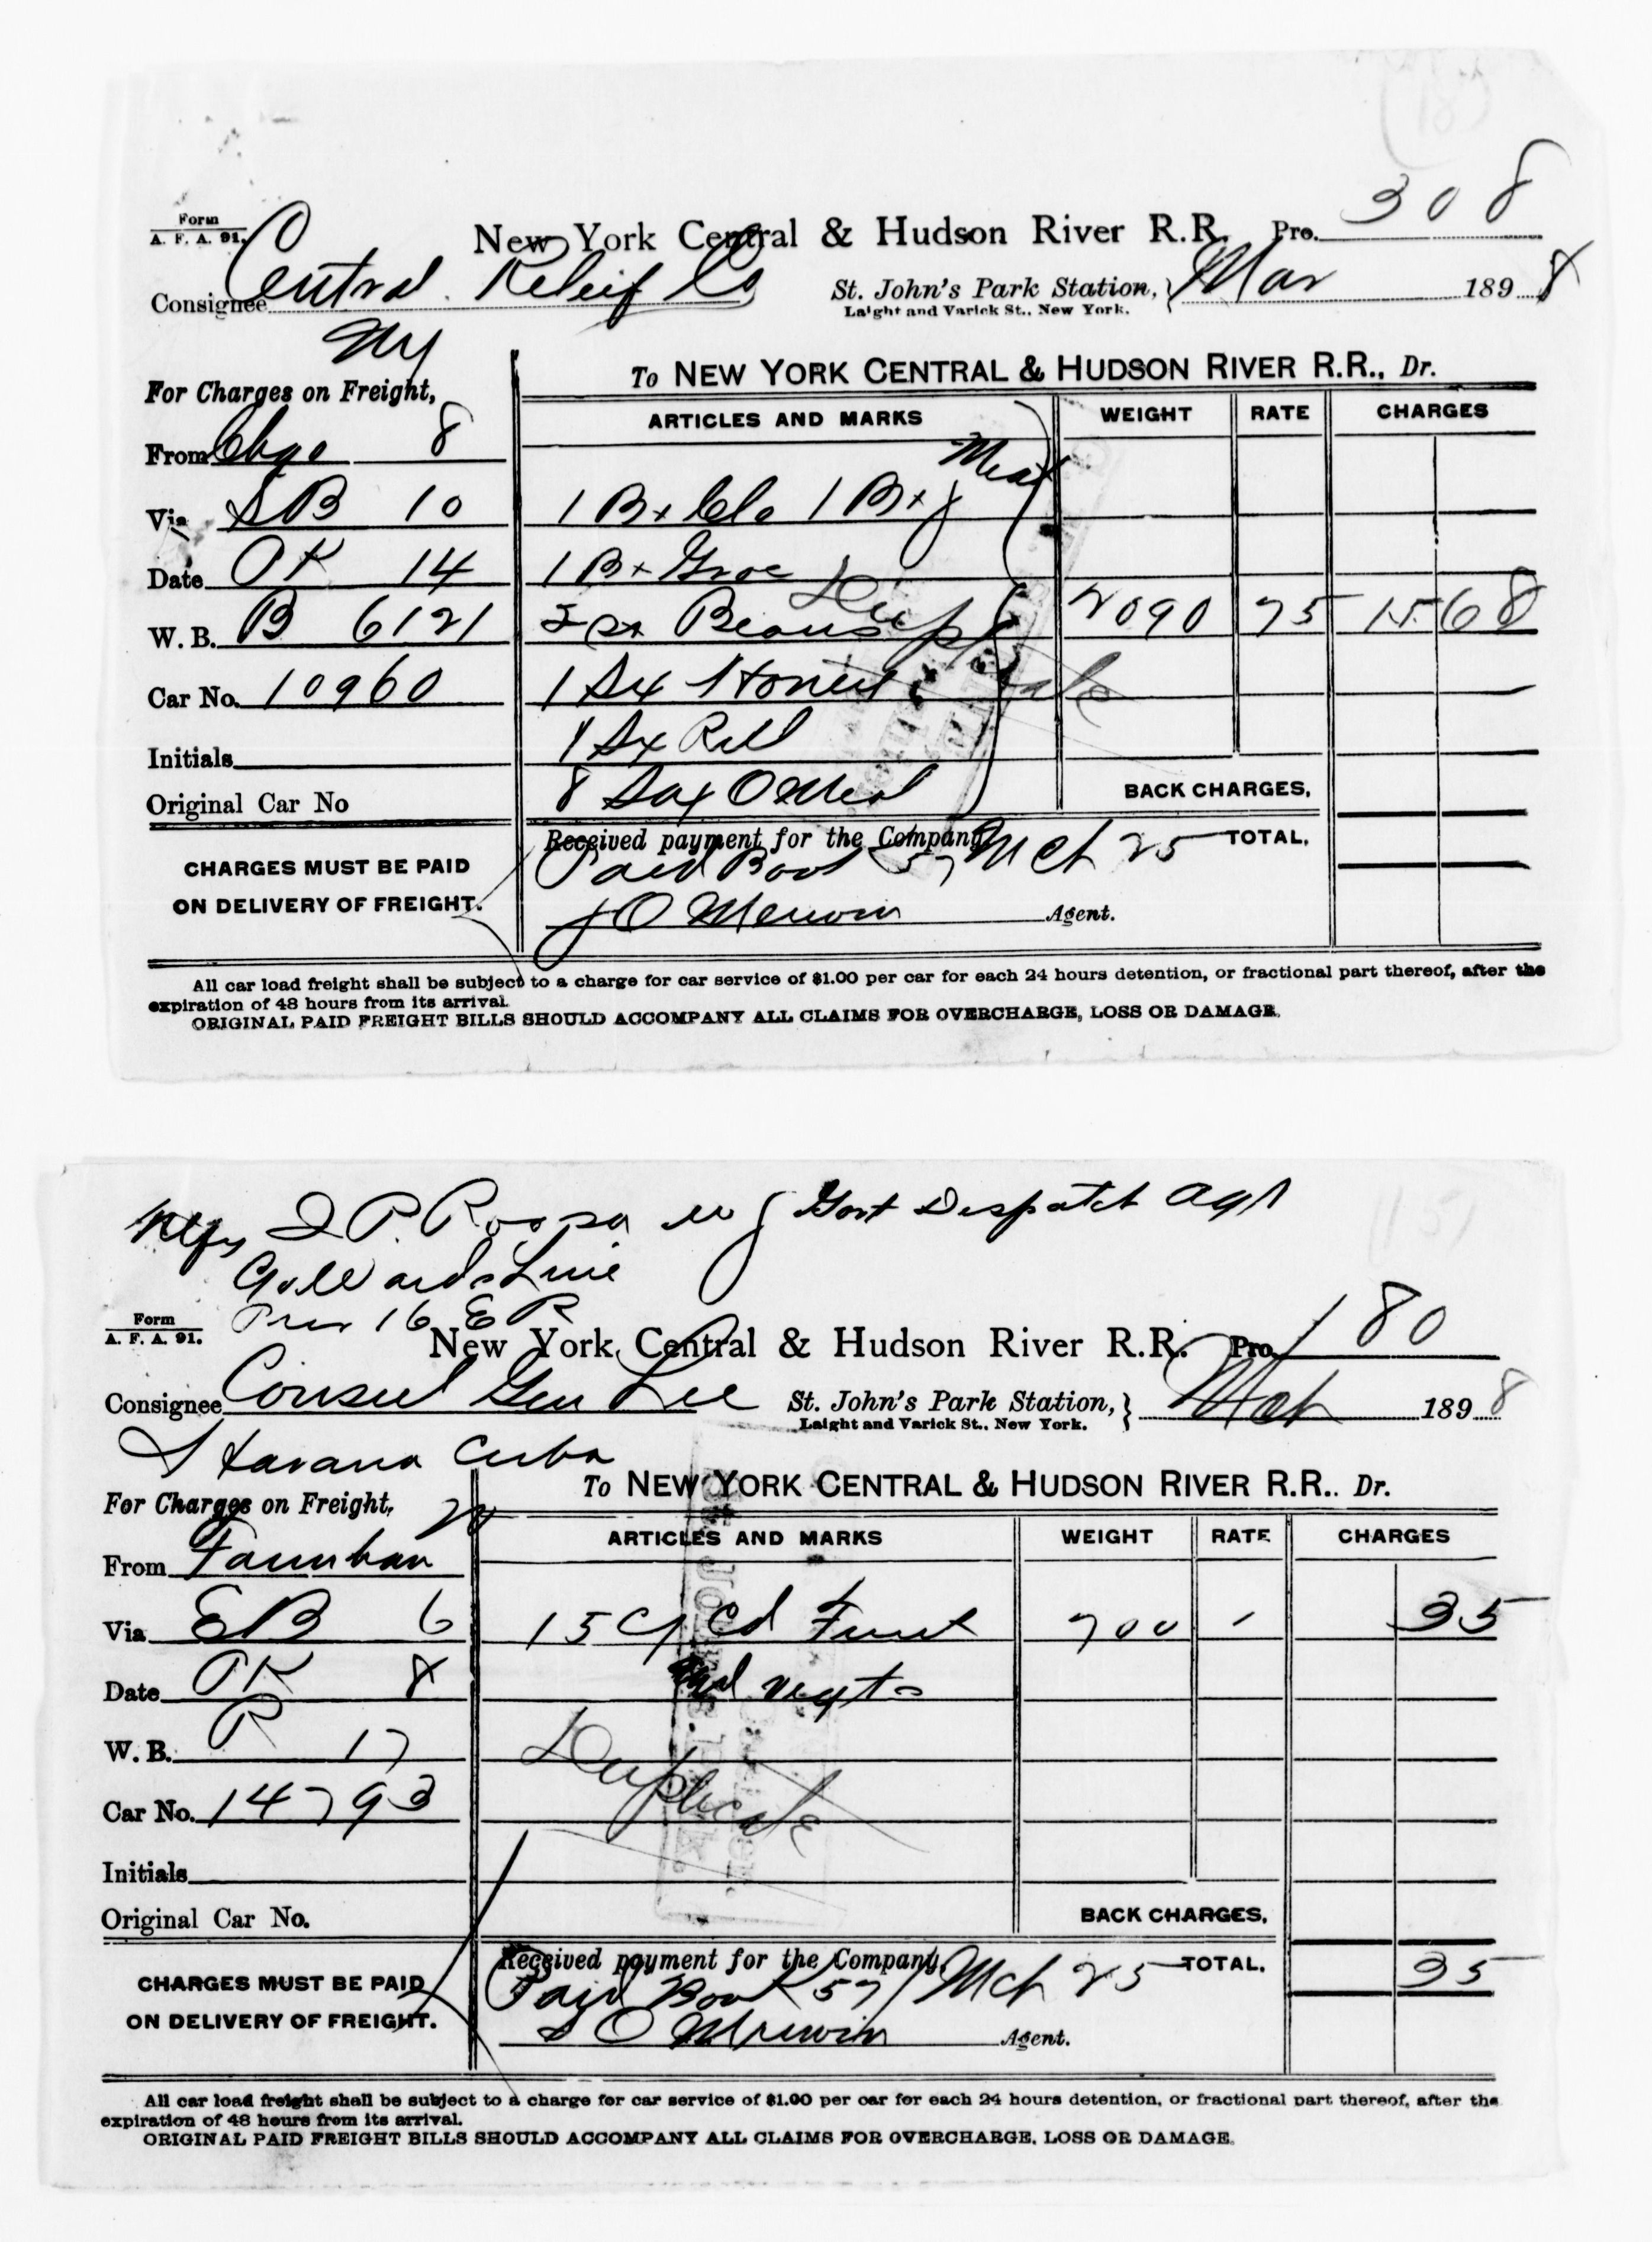 Form
A. F. A. 91.
New York Central & Hudson River R.R. Pro. 308
Consignee Central Relief Co St. John's Park Station, } Mar 1898
Laight and Varick St., New York.
NY
To NEW YORK CENTRAL & HUDSON RIVER R.R., Dr.
For Charges on Freight,
ARTICLES AND MARKS WEIGHT RATE CHARGES
From Chgo 8
Meat
Via SB 10 1 Bx Clo 1 Bx
Date OK 14 1 Bx Groc
W. B. B 6121 Beans 2090 75 15 68
Duplicate
Car No. 10960 1 Sx
Initials 1 Sx
Original Car No 8 Sax OMeal BACK CHARGES,
Received payment for the Company, TOTAL,
CHARGES MUST BE PAID
ON DELIVERY OF FREIGHT.
Paid Book 57 Mch 25
J O Merwin Agent.
All car load freight shall be subject to a charge for car service of $1.00 per car for each 24 hours detention, or fractional part thereof, after the
expiration of 48 hours from its arrival.
ORIGINAL PAID FREIGHT BILLS SHOULD ACCOMPANY ALL CLAIMS FOR OVERCHARGE, LOSS OR DAMAGE.
Govt Despatch Agt
Line
Pier 16 E R
Form
A. F. A. 91.
New York Central & Hudson River R.R. Pro. 180
Consignee Consul Gen Lee St. John's Park Station, } Mch 1898
Laight and Varick St., New York.
Havana Cuba
To NEW YORK CENTRAL & HUDSON RIVER R.R.. Dr.
For Charges on Freight,
ARTICLES AND MARKS WEIGHT RATE CHARGES
From
Via EB 6 15 Cs Cd Fruit 700 35
Date OK 8 and Vegts
W. B. R 17
Duplicate
Car No. 14793
Initials
Original Car No. BACK CHARGES,
Received payment for the Company, TOTAL, 35
CHARGES MUST BE PAID
ON DELIVERY OF FREIGHT.
Paid Book 57 Mch 25
J O Merwin Agent.
All car load freight shall be subject to a charge for car service of $1.00 per car for each 24 hours detention, or fractional part thereof, after the
expiration of 48 hours from its arrival.
ORIGINAL PAID FREIGHT BILLS SHOULD ACCOMPANY ALL CLAIMS FOR OVERCHARGE, LOSS OR DAMAGE.